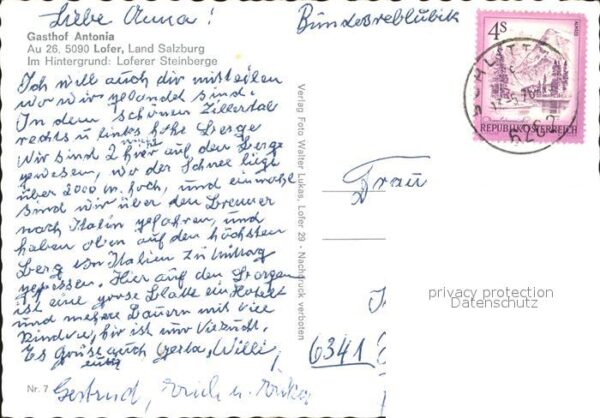 Liebe Anna!
Gasthof Antonia
Au 26, 5090 Lofer, Land Salzburg
Im Hintergrund: Loferer Steinberge
Ich will auch dir mitteilen
wo wir gelandet sind.
In dem schönen Zillertal
rechts u links hohe Berge
Wir sind 2 hier auf den Berge
gewesen, wo der Schnee liegt
über 2000 m. hoch, und einmahl
sind wir über den Brenner
nach Italin gefahren, und
haben oben auf den höchsten
Berg von Italien zu Mittag
gegessen. Hier auf den
ist eine grose Platte ein Hotel
und mehere Bauern mit vice
hir ist nur Viezucht.
Es grüsst auch Gerta, Willi,
Gertrud, Erich u. Erika
Nr. 7
Verlag Foto Walter Lukas, Lofer 29 - Nachdruck verboten
Bundesreblübik
4S
REPUBLIK ÖSTERREICH
6262
Frau
6341
privacy protection
Datenschutz